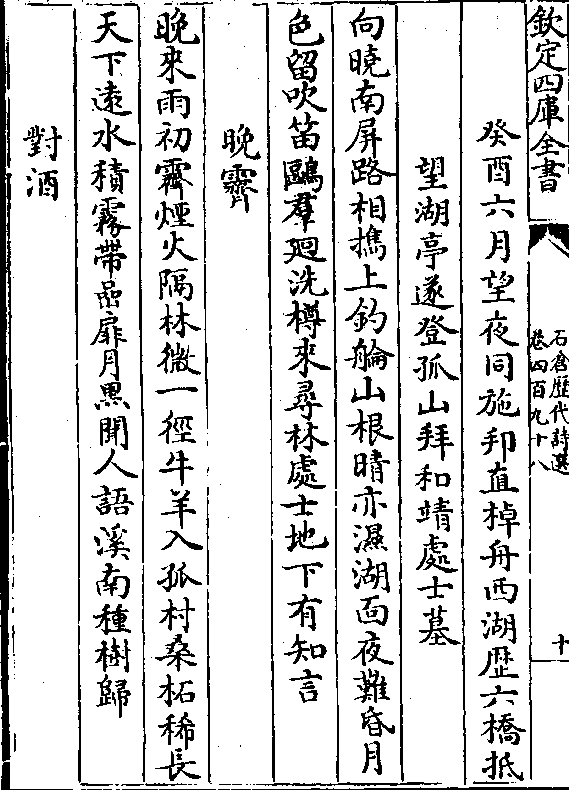 欽定四庫全書
石倉歴代詩選
卷四百九十八
十
癸酉六月望夜同施邦直棹舟西湖歴六橋抵
望湖亭遂登孤山拜和靖處士墓
向曉南屏路相攜上釣艫山根晴亦濕湖面夜難昏月
色留吹笛鷗羣廻洗樽來尋林處士地下有知言
晚霽
晚來雨初霽煙火隔林微一徑牛羊入孤村桑柘稀長
天下遠水積霧帶喦扉月黒聞人語溪南種樹歸
對酒